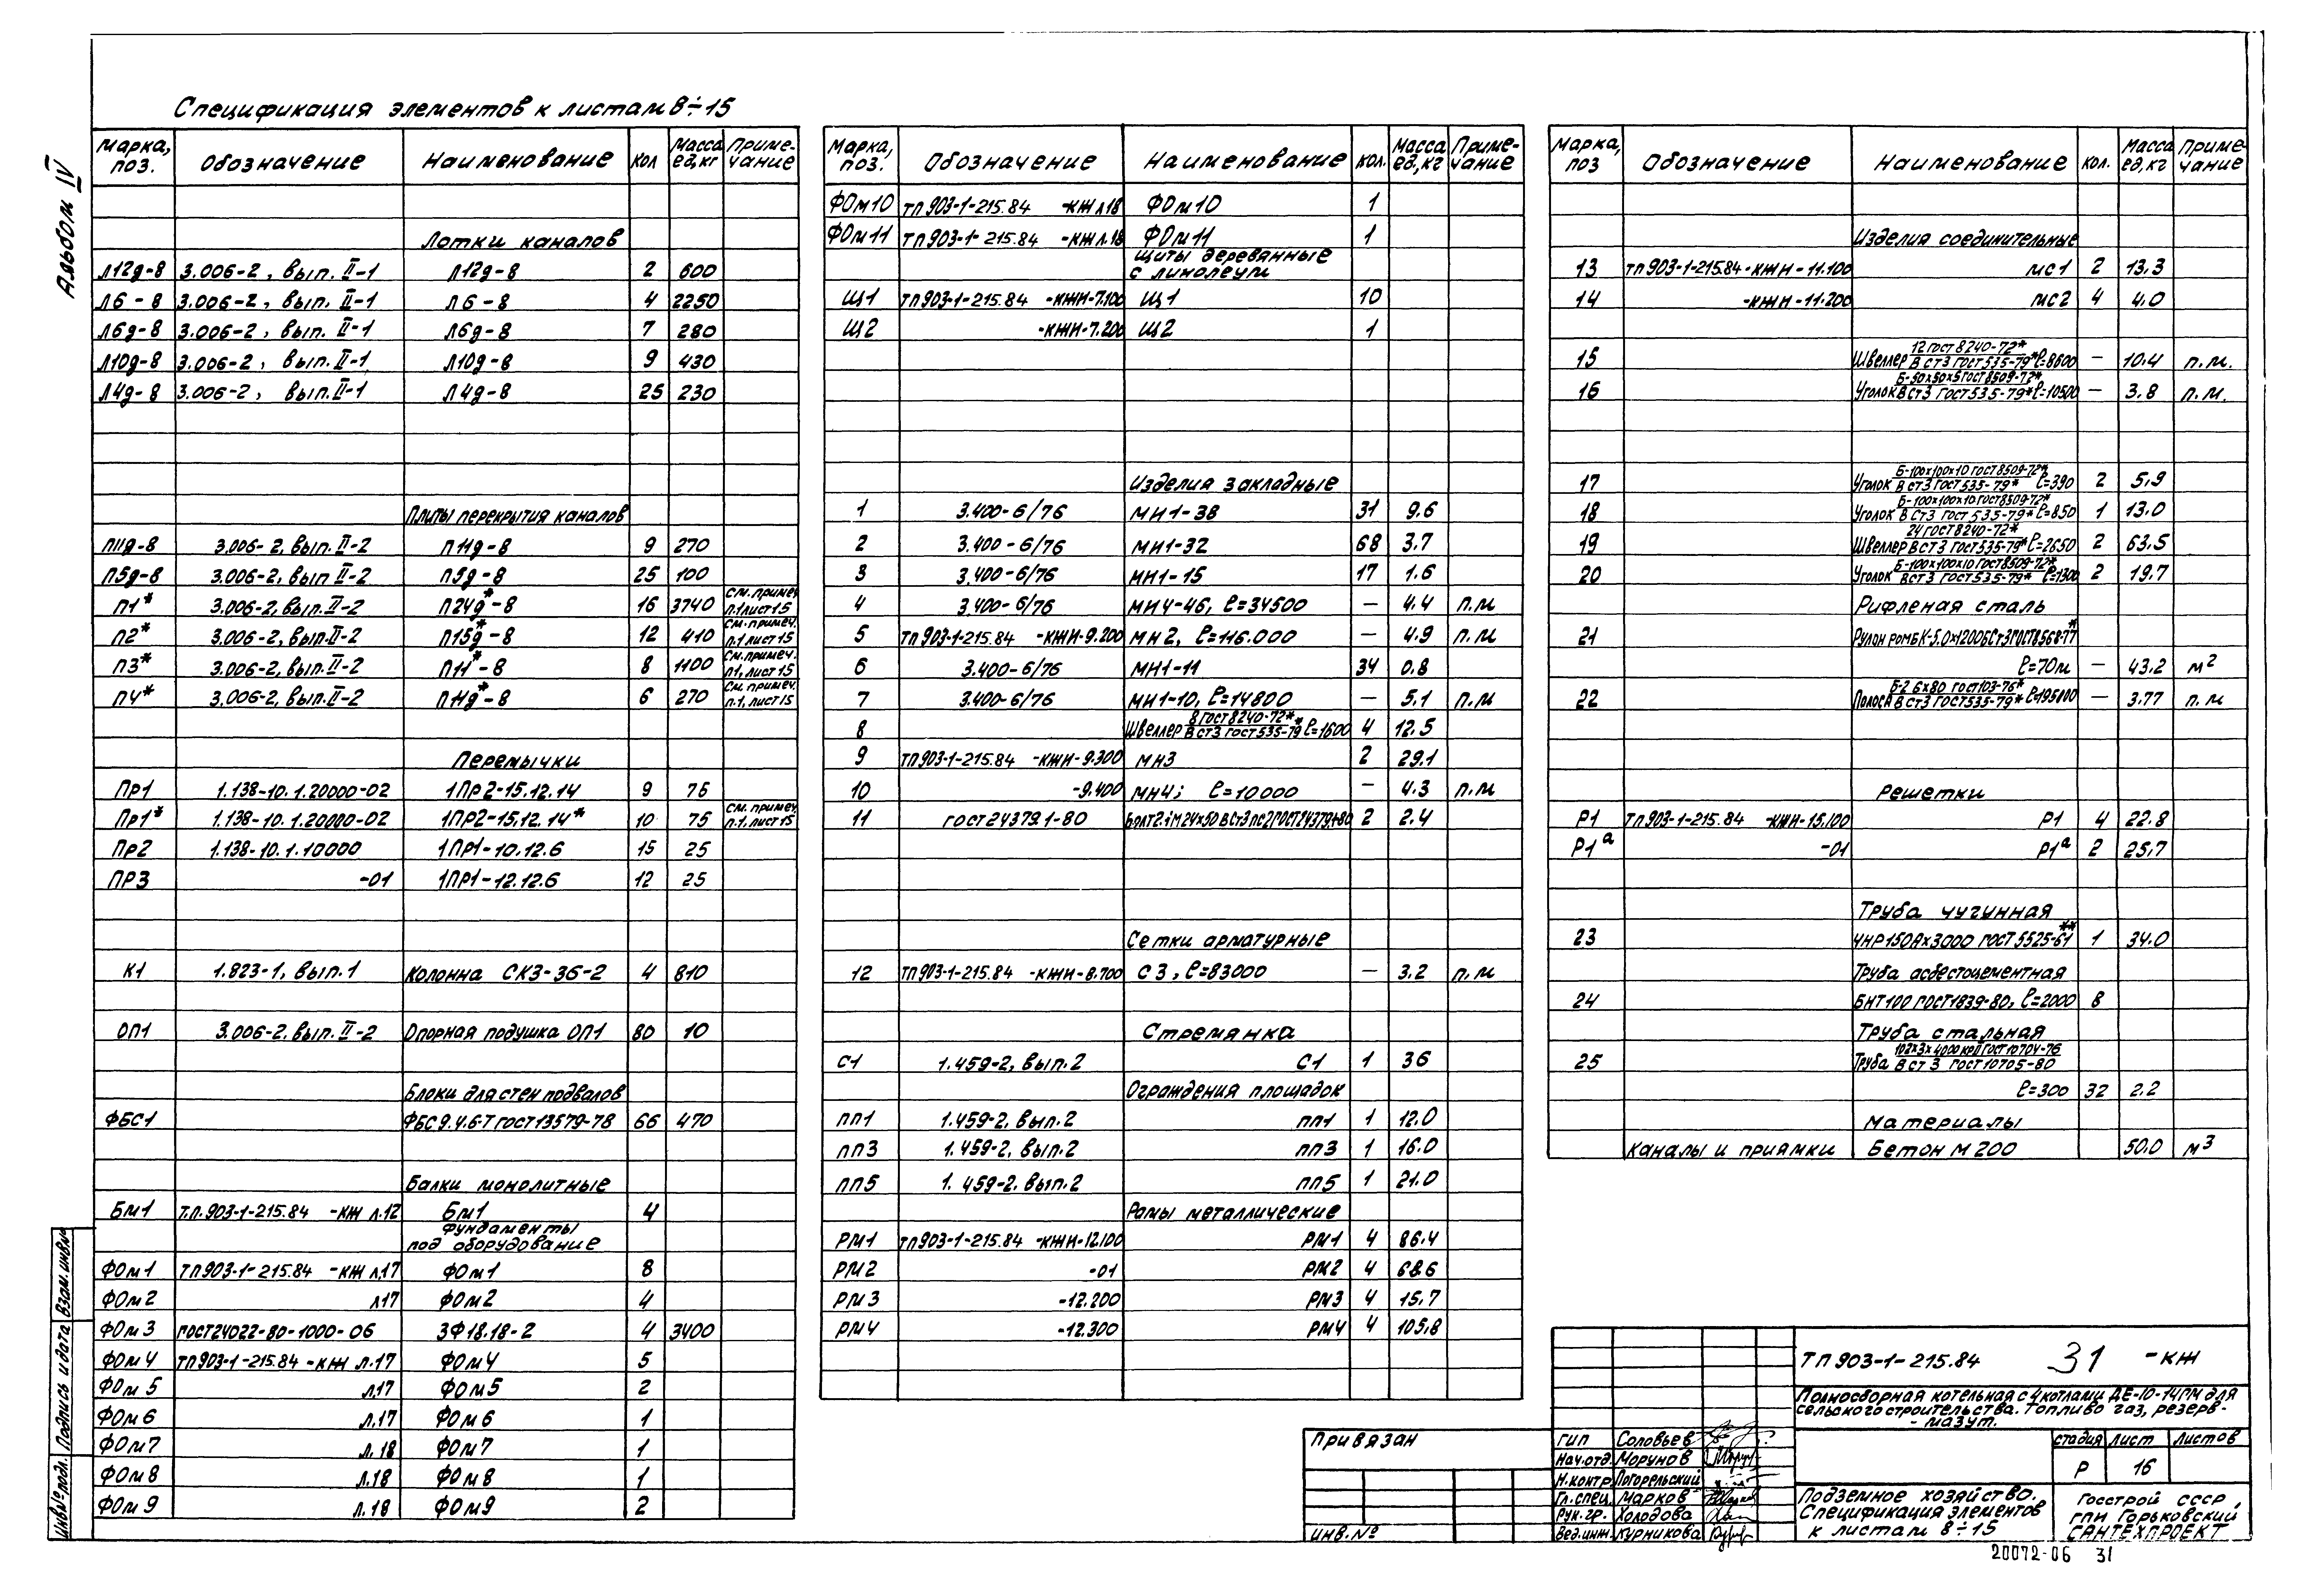 Альбом IV
Спецификация элементов к листам 8÷15
Марка, поз. Обозначение Наименование Кол Масса ед, кг Приме-чание
Лотки каналов
Л12д-8 3.006-2, вып. II-1 Л12д-8 2 600
Л6-8 3.006-2, вып. II-1 Л6-8 4 2250
Л6д-8 3.006-2, вып. II-1 Л6д-8 7 280
Л10д-8 3.006-2, вып. II-1 Л10д-8 9 430
Л4д-8 3.006-2, вып. II-1 Л4д-8 25 230
Плиты перекрытия каналов
П11д-8 3.006-2, вып. II-2 П11д-8 9 270
П5д-8 3.006-2, вып II-2 П5д-8 25 100
П1* 3.006-2, вып. II-2 П24д*-8 16 3740 см. примеч. п.1 лист 15
П2* 3.006-2, вып. II-2 П15д*-8 12 410 см. примеч. п.1 лист 15
П3* 3.006-2, вып. II-2 П11*-8 8 1100 см. примеч. п.1, лист 15
П4* 3.006-2, вып. II-2 П11д*-8 6 270 см. примеч. п.1, лист 15
Перемычки
Пр1 1.138-10.1.20000-02 1ПР2-15.12.14 9 75
Пр1* 1.138-10.1.20000-02 1ПР2-15.12.14* 10 75 см. примеч. п.1, лист 15
Пр2 1.138-10.1.10000 1ПР1-10.12.6 15 25
ПР3 -01 1ПР1-12.12.6 12 25
К1 1.823-1, вып.1 Колонна СК3-36-2 4 810
ОП1 3.006-2, вып. II-2 Опорная подушка ОП1 80 10
Блоки для стен подвалов
ФБС1 ФБС 9.4.6-Т ГОСТ 13579-78 66 470
Балки монолитные
Бм1 Т.П.903-1-215.84 -КЖ л.12 Бм1 4
Фундаменты
под оборудование
ФОм1 ТП903-1-215.84 -КЖ л.17 ФОм1 8
ФОм2 л17 ФОм2 4
ФОм3 ГОСТ24022-80-1000-06 3Ф18.18-2 4 3400
ФОм4 ТП903-1-215.84 -КЖ л.17 ФОм4 5
ФОм5 л.17 ФОм5 2
ФОм6 л.17 ФОм6 1
ФОм7 л.18 ФОм7 1
ФОм8 л.18 ФОм8 1
ФОм9 л.18 ФОм9 2
Марка, поз. Обозначение Наименование Кол. Масса ед, кг Приме-чание
ФОм10 ТП903-1-215.84 -КЖ л18 ФОм10 1
ФОм11 ТП903-1-215.84 -КЖ л.18 ФОм11 1
Щиты деревянные
с линолеум
Щ1 ТП903-1-215.84 -КЖИ-7.100 Щ1 10
Щ2 -КЖИ-7.200 Щ2 1
Изделия закладные
1 3.400-6/76 МИ1-38 31 9.6
2 3.400-6/76 МИ1-32 68 3.7
3 3.400-6/76 МИ1-15 17 1.6
4 3.400-6/76 МИ4-46, ℓ=34500 — 4.4 п.м
5 ТП903-1-215.84 -КЖИ-9.200 МН2, ℓ=116.000 — 4.9 п.м
6 3.400-6/76 МН1-11 34 0.8
7 3.400-6/76 МИ1-10, ℓ=14800 — 5.1 п.м
8 Швеллер 8 ГОСТ 8240-72* / В Ст3 ГОСТ 535-79* ℓ=1600 4 12.5
9 ТП903-1-215.84 -КЖИ-9.300 МН3 2 29.1
10 -9.400 МН4; ℓ=10000 — 4.3 п.м
11 ГОСТ 24379.1-80 Болт2.1М24х50 ВСт3пс2ГОСТ24379.1-80 2 2.4
Сетки арматурные
12 ТП903-1-215.84 -КЖИ-8.700 С3, ℓ=83000 — 3.2 п.м
Стремянка
С1 1.459-2, вып.2 С1 1 36
Ограждения площадок
ПП1 1.459-2, вып.2 ПП1 1 12.0
ПП3 1.459-2, вып.2 ПП3 1 16.0
ПП5 1.459-2, вып.2 ПП5 1 21.0
Рамы металлические
РМ1 ТП903-1-215.84 -КЖИ-12.100 РМ1 4 86.4
РМ2 -01 РМ2 4 68.6
РМ3 -12.200 РМ3 4 15.7
РМ4 -12.300 РМ4 4 105.8
Марка, поз Обозначение Наименование Кол. Масса ед, кг Приме-чание
Изделия соединительные
13 ТП903-1-215.84-КЖИ-11.100 МС1 2 13.3
14 -КЖИ-11.200 МС2 4 4.0
15 Швеллер 12 ГОСТ 8240-72* / В Ст3 ГОСТ 535-79* ℓ=8600 — 10.4 п.м.
16 Уголок Б-50х50х5 ГОСТ 8509-72* / В Ст3 ГОСТ 535-79* ℓ=10500 — 3.8 п.м.
17 Уголок Б-100х100х10 ГОСТ 8509-72* / В Ст3 ГОСТ 535-79* ℓ=390 2 5.9
18 Уголок Б-100х100х10 ГОСТ 8509-72* / В Ст3 ГОСТ 535-79* ℓ=850 1 13.0
19 Швеллер 24 ГОСТ 8240-72* / В Ст3 ГОСТ 535-79* ℓ=2650 2 63.5
20 Уголок Б-100х100х10 ГОСТ 8509-72* / В Ст3 ГОСТ 535-79* ℓ=1300 2 19.7
Рифленая сталь
21 Рулон ромб К-5.0х1200БСт3ГОСТ8568-77*
ℓ=70м — 43.2 м2
22 Полоса Б-2 6х80 ГОСТ 103-76* / В Ст3 ГОСТ 535-79* ℓ=195800 — 3.77 п.м
Решетки
Р1 ТП903-1-215.84 -КЖИ-15.100 Р1 4 22.8
Р1а -01 Р1а 2 25.7
Труба чугунная
23 ЧНР150Ах3000 ГОСТ 5525-61** 1 34.0
Труба асбестоцементная
24 БНТ100 ГОСТ1839-80, ℓ=2000 8
Труба стальная
25 Труба 102х3х4000 кр II ГОСТ 10704-76 / В Ст 3 ГОСТ 10705-80
ℓ=300 32 2.2
Материалы
Каналы и приямки Бетон М200 50.0 м3
ТП 903-1-215.84 31 -КЖ
Полносборная котельная с 4 котлами ДЕ-10-14ГМ для
сельского строительства. Топливо газ, резерв-
- мазут.
Стадия Лист Листов
Р 16
Подземное хозяйство.
Спецификация элементов
к листам 8÷15
Госстрой СССР,
ГПИ Горьковский
САНТЕХПРОЕКТ
Привязан
Инв.№
ГИП Соловьев
Нач.отд. Морунов
Н.контр Погорельский
Гл.спец. Марков
Рук.гр. Холодова
Вед.инж. Курникова
Инв№подл. Подпись и дата Взам.инв№
20072-06 31